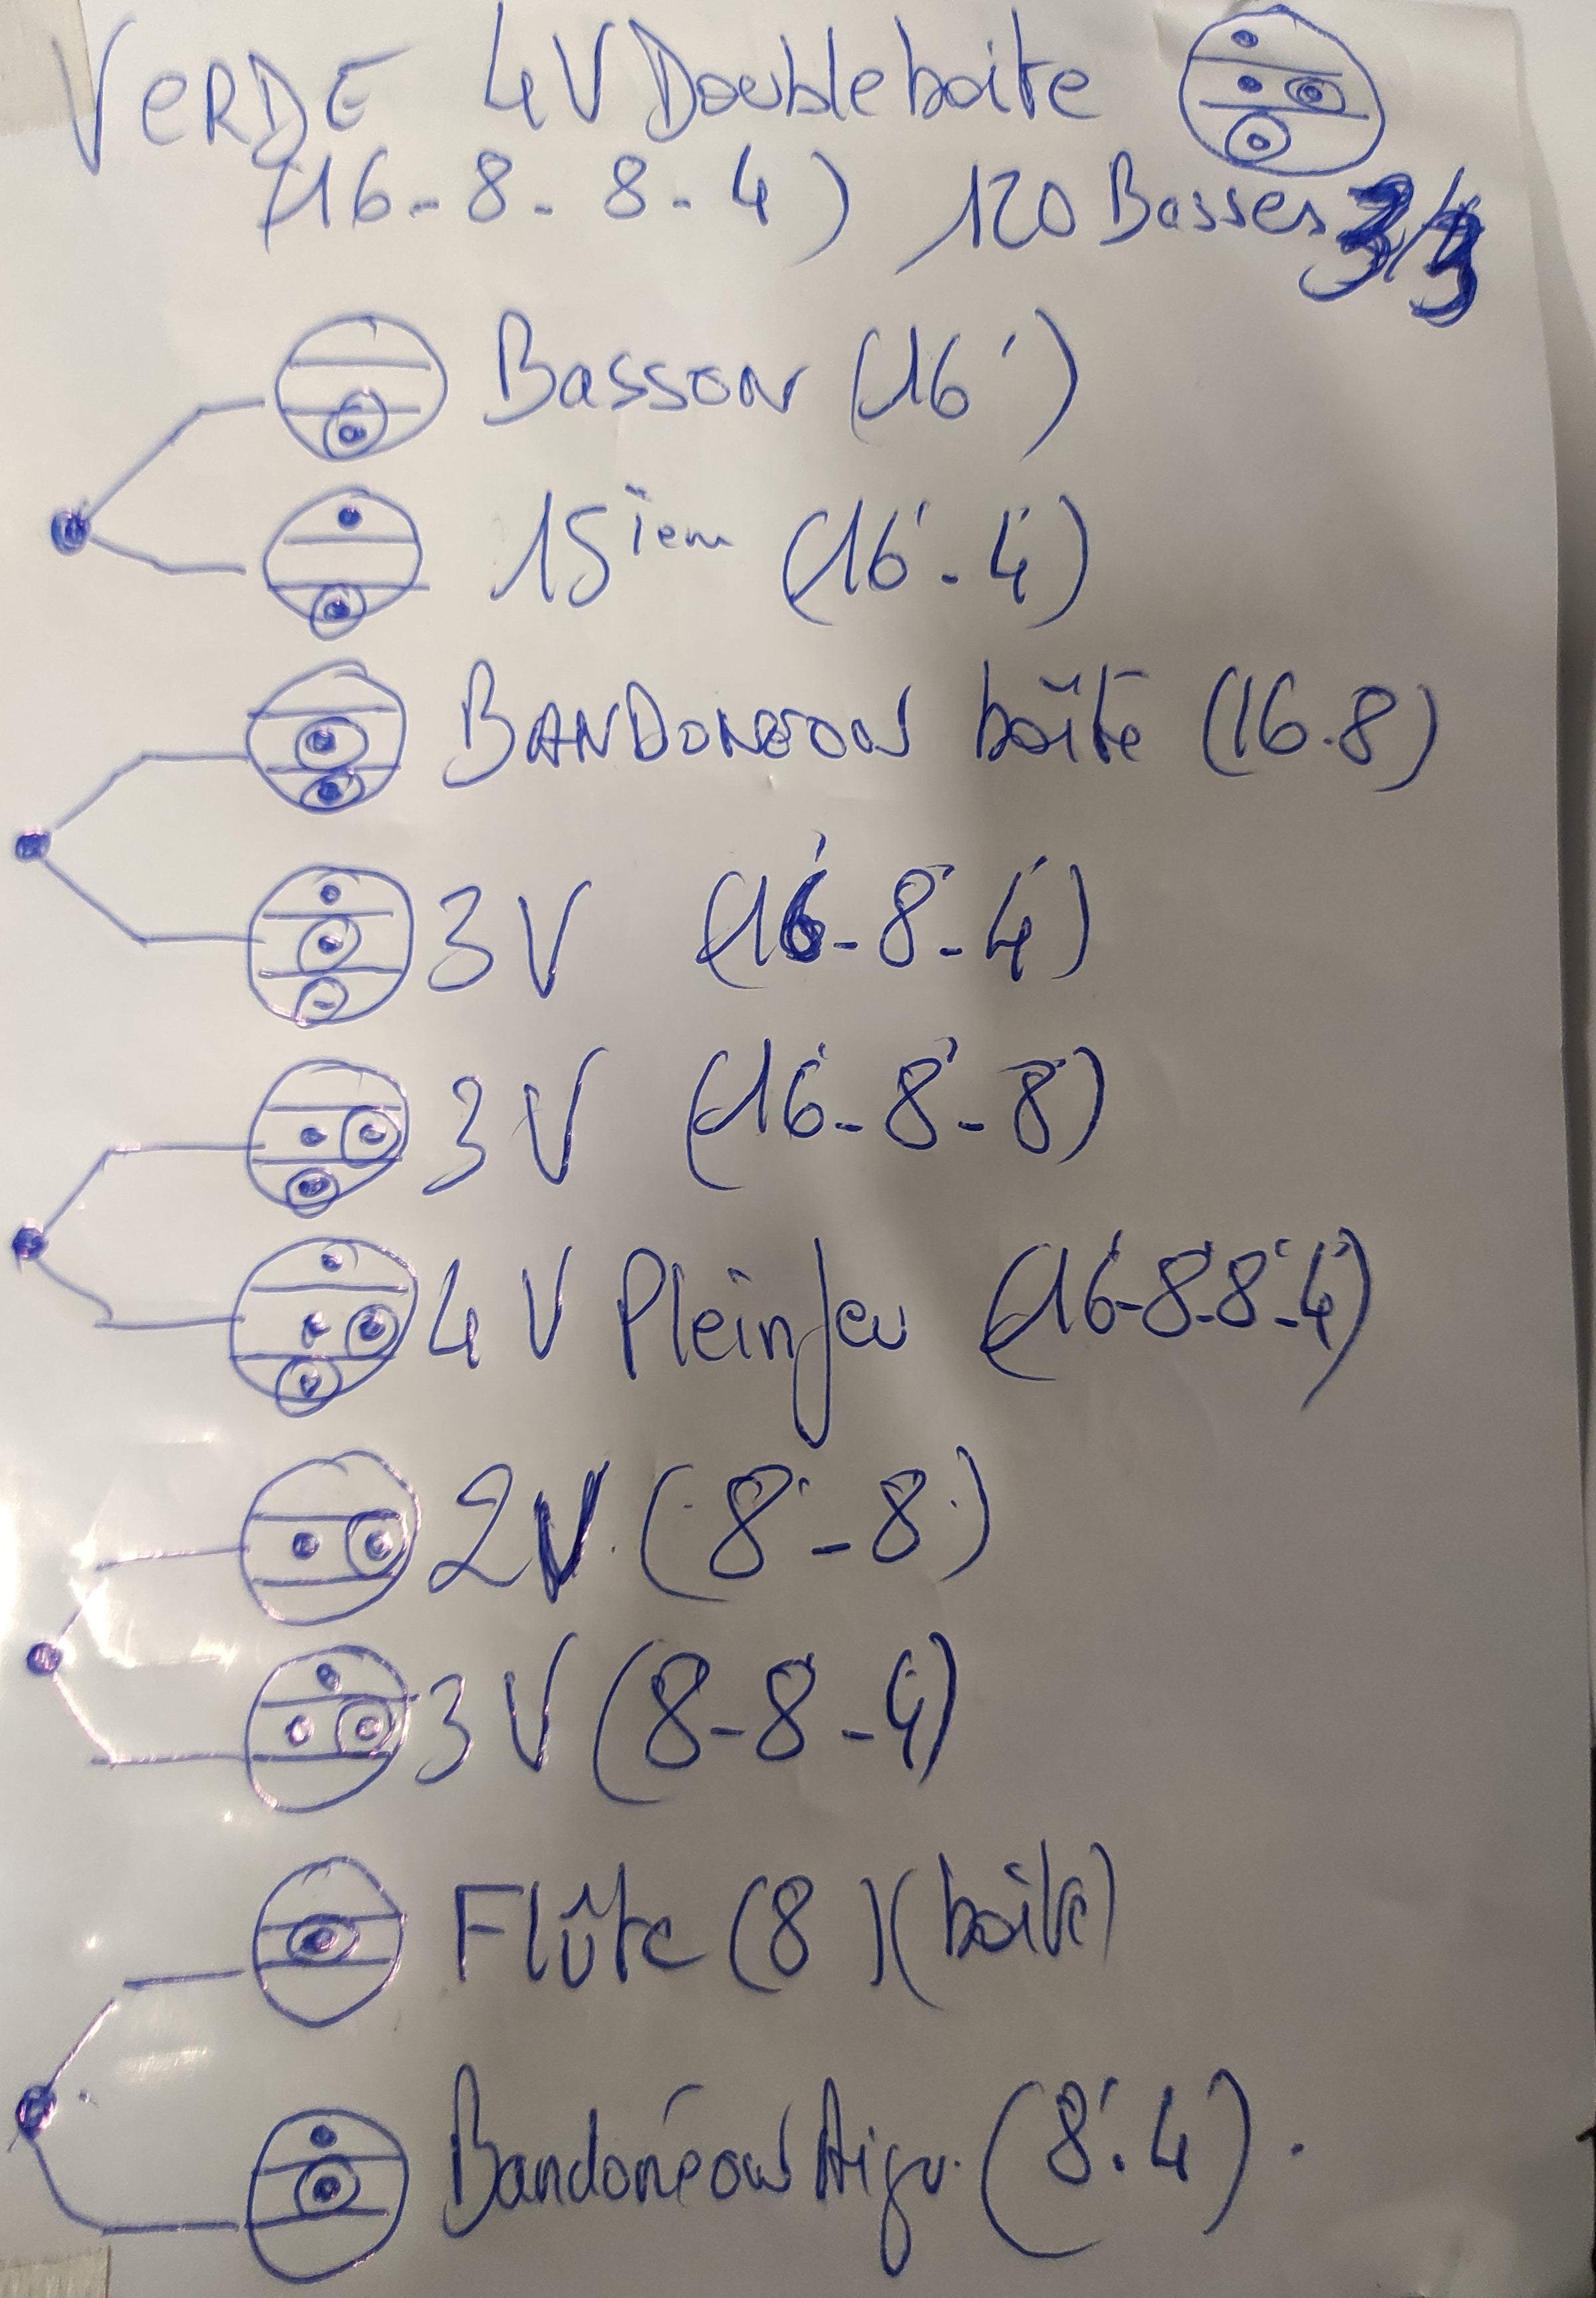 VERDE 4V Double boite
(16-8-8-4) 120 Basses 3/3
Basson (16')
15ièm (16'-4')
BANDONEON boîte (16.8)
3V (16'-8'-4')
3V (16'-8'-8')
4V Plein Jeu (16'-8'-8'-4')
2V (8'-8')
3V (8-8-4)
Flûte (8) (boîte)
Bandonéon Aigu. (8'.4').